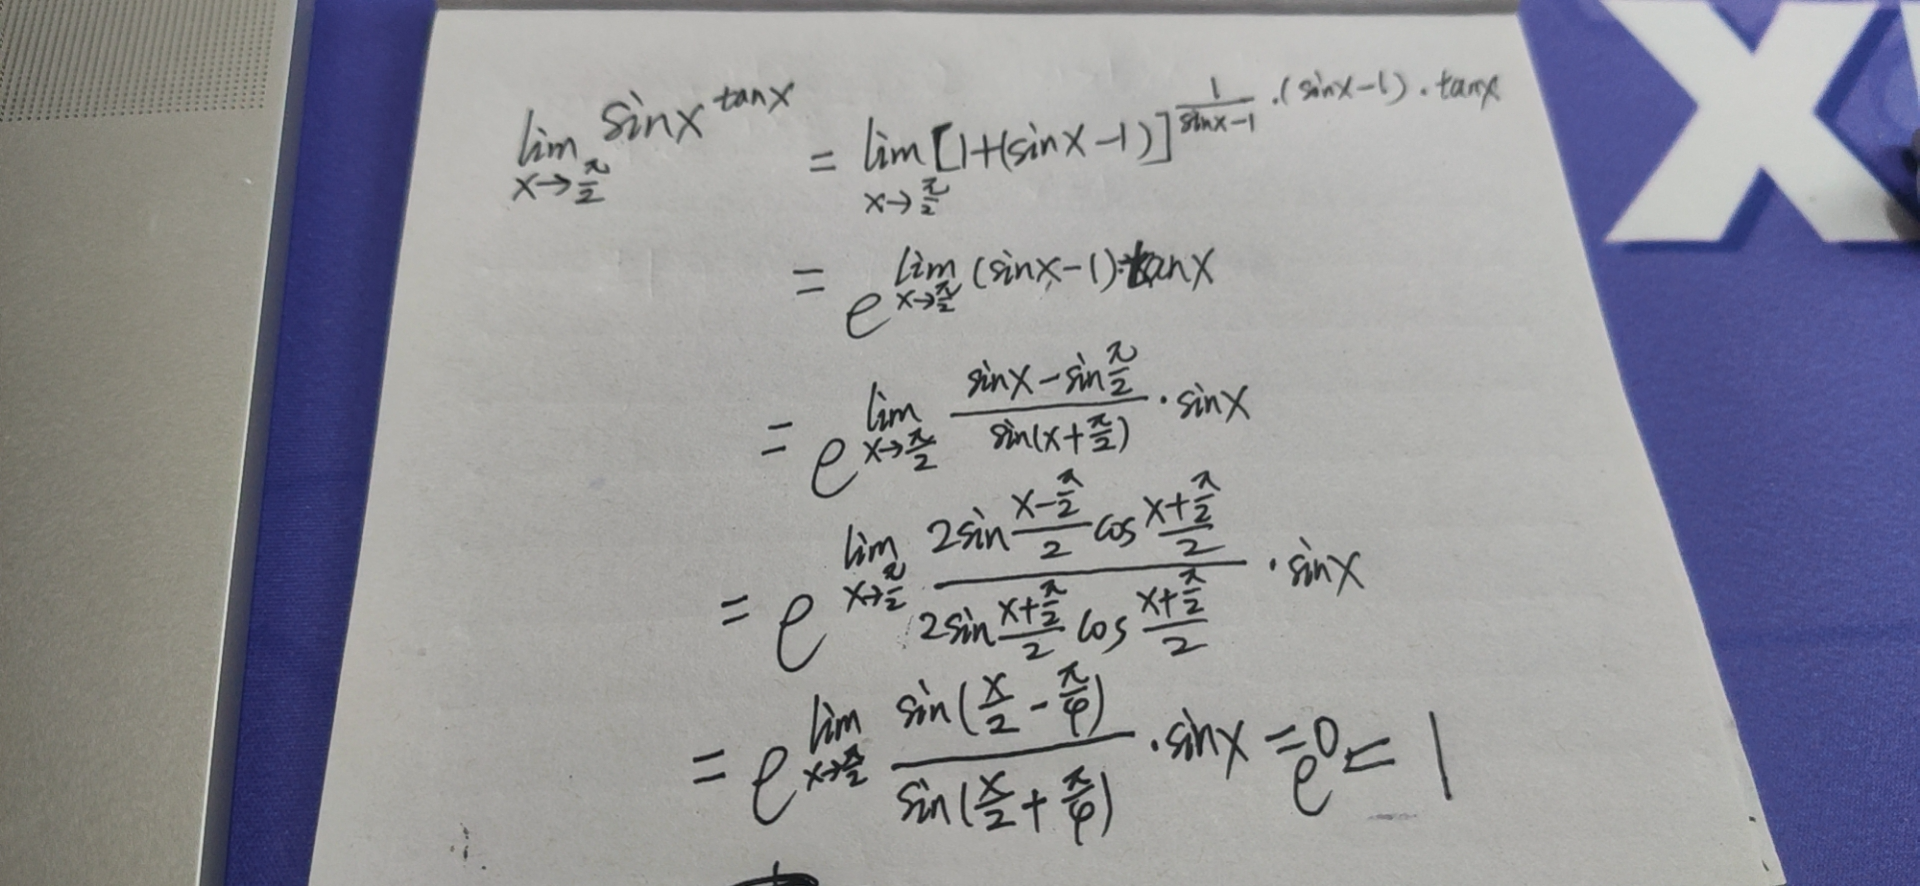 lim_{x→π/2} sinx^{tanx} = lim_{x→π/2} [1+(sinx-1)]^{\frac{1}{sinx-1}·(sinx-1)·tanx}
= e^{lim_{x→π/2} (sinx-1)·tanx}
= e^{lim_{x→π/2} \frac{sinx-sin\frac{π}{2}}{sin(x+\frac{π}{2})}·sinx}
= e^{lim_{x→π/2} \frac{2sin\frac{x-\frac{π}{2}}{2}cos\frac{x+\frac{π}{2}}{2}}{2sin\frac{x+\frac{π}{2}}{2}cos\frac{x+\frac{π}{2}}{2}}·sinx}
= e^{lim_{x→π/2} \frac{sin(\frac{x}{2}-\frac{π}{4})}{sin(\frac{x}{2}+\frac{π}{4})}·sinx} = e^0 = 1